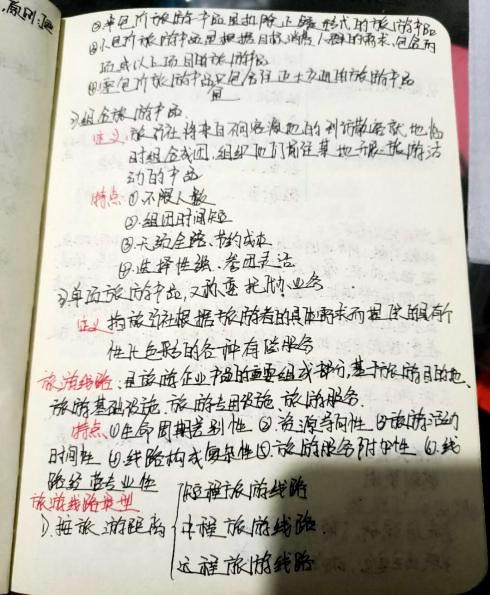 原则:
②半包价旅游产品是扣除正餐形式的旅游产品
③小包价旅游产品是根据目标消费人群的需求,包含两
项或以上项目的旅游产品
④零包价旅游产品只包含往返大交通的旅游产品
包
2)组合旅游产品
定义:旅行社将来自不同客源地的到访散客就地临
时组合成团,组织他们前往某地开展旅游活
动的产品
特点:①不限人数
②组团时间短
③节约成本
④选择性强、参团灵活
3)单项旅游产品,又称委托代办业务
定义 指旅行社根据旅游者的具体需求而提供的具有个
性化色彩的各种有偿服务
旅游线路:是旅游企业产品的重要组成部分,基于旅游目的地、
旅游基础设施、旅游专用设施、旅游服务.
特点①生命周期差别性 ②资源导向性 ③旅游活动
时间性 ④线路构成复杂性⑤旅游服务附加性 ⑥线
路经营专业性
旅游线路类型
1)按旅游距离
短程旅游线路
中程旅游线路
远程旅游线路